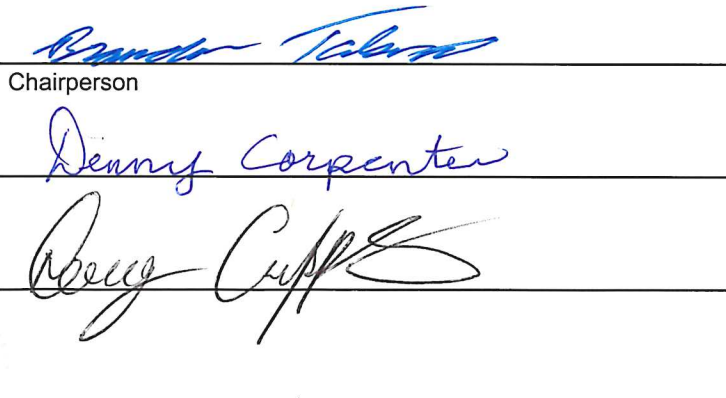 Brandon
Chairperson
Denny Carpenter
Doug Cupps